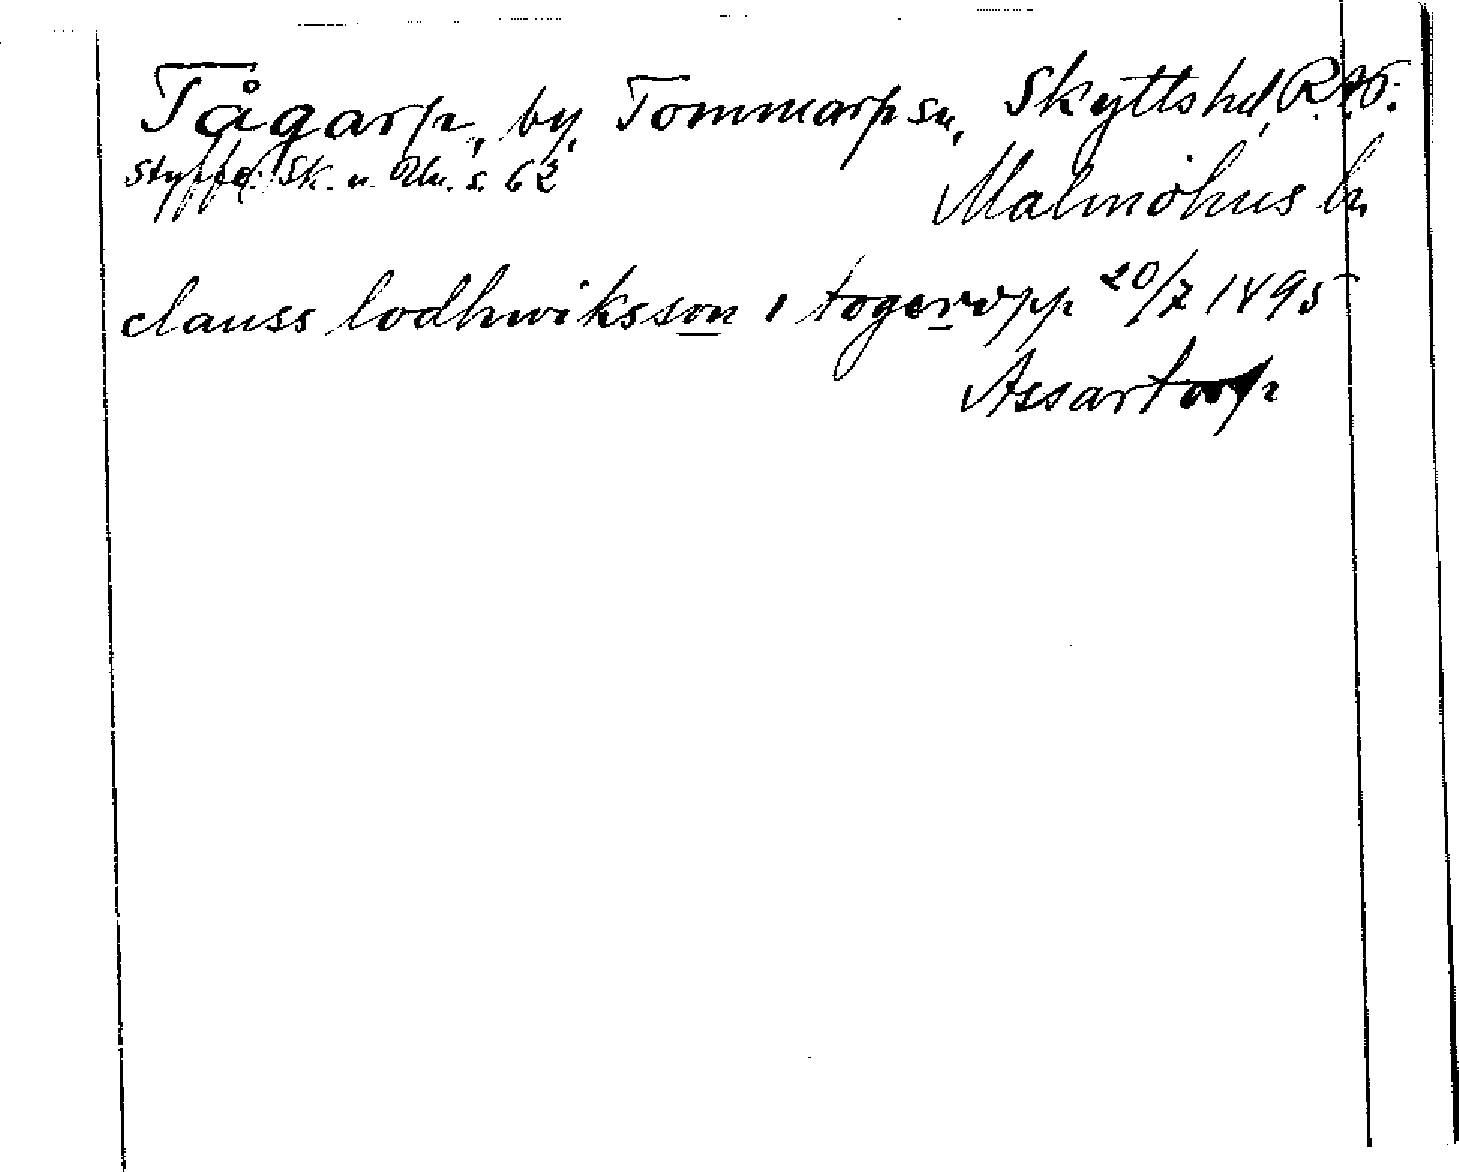 Tågarp, by, Tommarp sn, Skytts hd, R.
Styffe: Sk. u. Un. s. 62
Malmöhus ln
clauss lodhwiksson i togeropp 20/7 1495
Assartorp